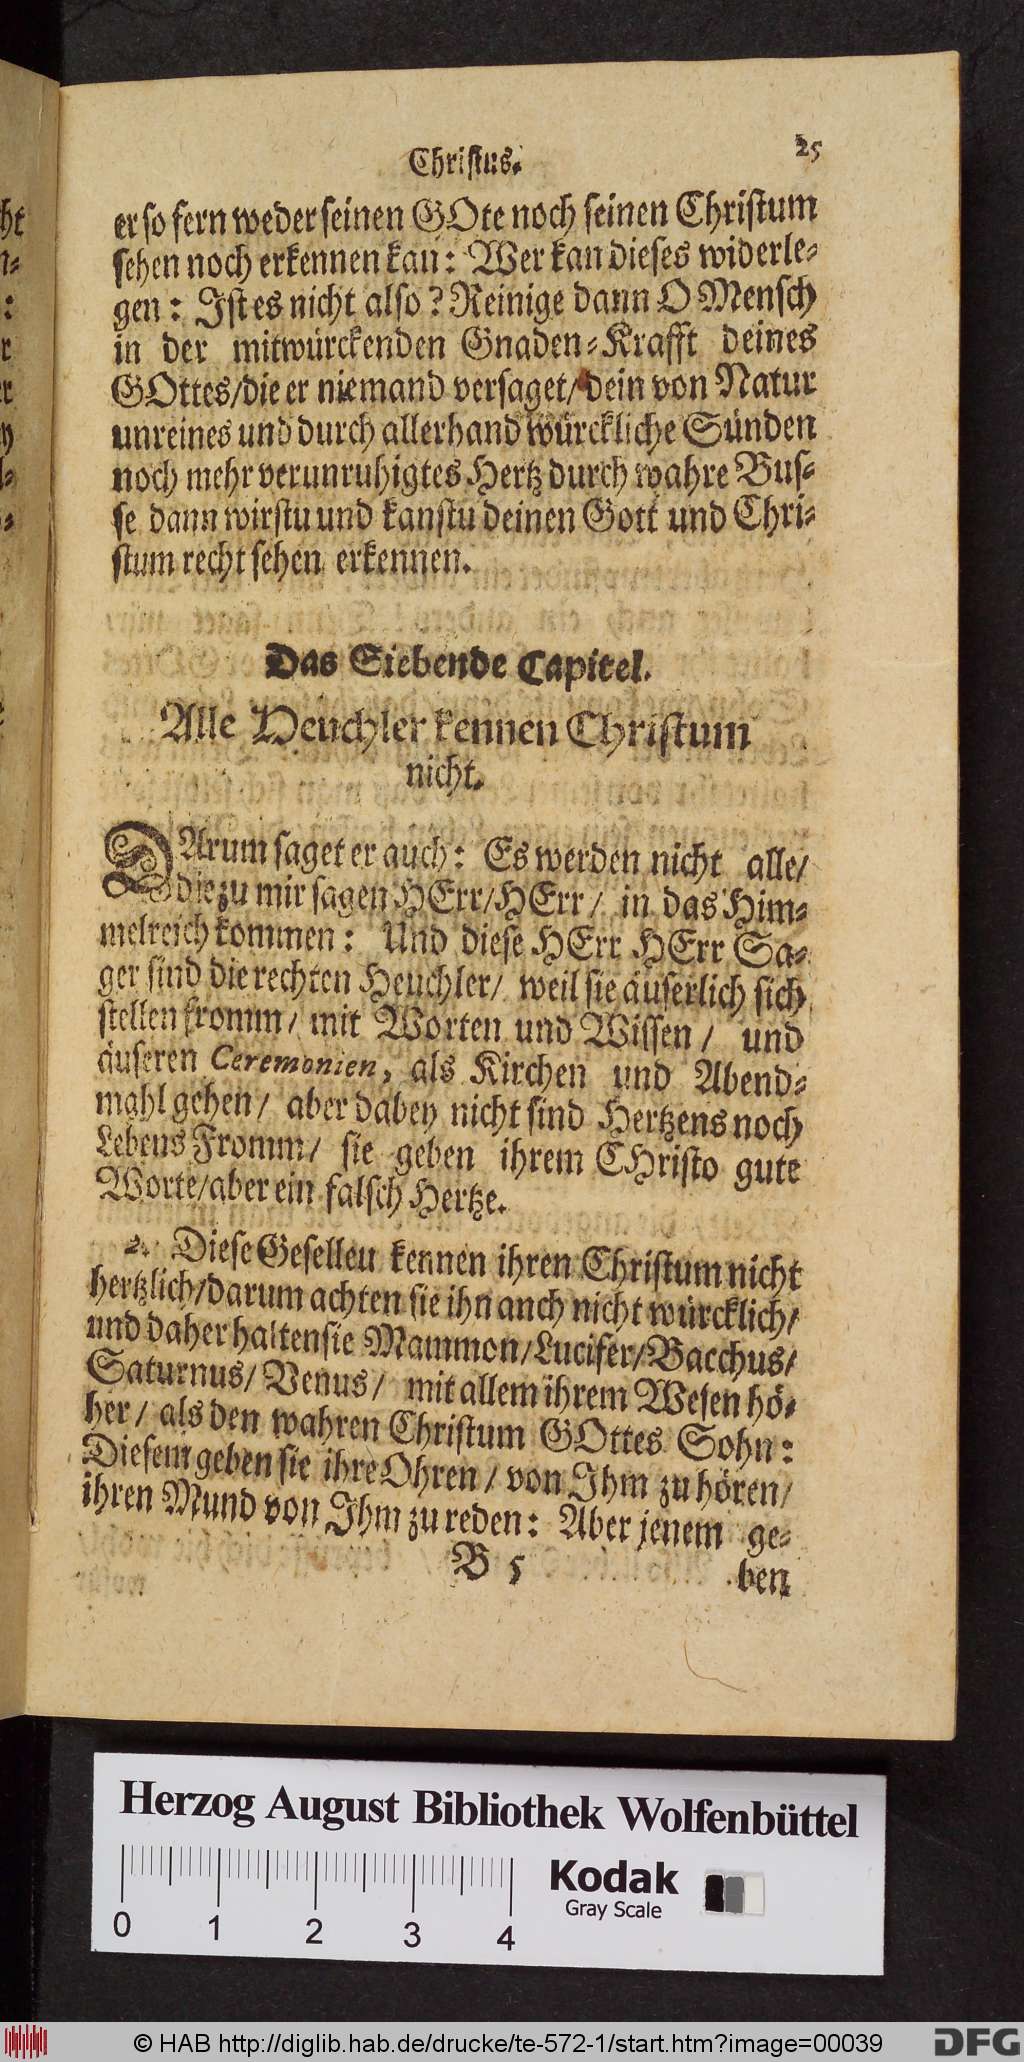 Christus. 25
er so fern weder seinen GOte noch seinen Christum
sehen noch erkennen kan: Wer kan dieses widerle-
gen: Ist es nicht also? Reinige dann O Mensch
in der mitwürckenden Gnaden-Krafft deines
GOttes/die er niemand versaget/dein von Natur
unreines und durch allerhand würckliche Sünden
noch mehr verunruhigtes Hertz durch wahre Bus-
se dann wirstu und kanstu deinen Gott und Chri-
stum recht sehen erkennen.
Das Siebende Capitel.
Alle Heuchler kennen Christum
nicht.
DArum saget er auch: Es werden nicht alle/
die zu mir sagen HErr/HErr/ in das Him-
melreich kommen: Und diese HErr HErr Sa-
ger sind die rechten Heuchler/ weil sie äuserlich sich
stellen fromm/ mit Worten und Wissen/ und
äuseren Ceremonien, als Kirchen und Abend-
mahl gehen/ aber dabey nicht sind Hertzens noch
Lebens Fromm/ sie geben ihrem CHristo gute
Worte/aber ein falsch Hertze.
2. Diese Gesellen kennen ihren Christum nicht
hertzlich/darum achten sie ihn auch nicht würcklich/
und daher halten sie Mammon/Lucifer/Bacchus/
Saturnus/ Venus/ mit allem ihrem Wesen hö-
her/ als den wahren Christum GOttes Sohn:
Diesem geben sie ihre Ohren/ von Ihm zu hören/
ihren Mund von Ihm zu reden: Aber jenem ge-
B 5 ben
ht
n-
:
r
er
y
l-
Herzog August Bibliothek Wolfenbüttel
0 1 2 3 4
Kodak
Gray Scale
© HAB http://diglib.hab.de/drucke/te-572-1/start.htm?image=00039
DFG